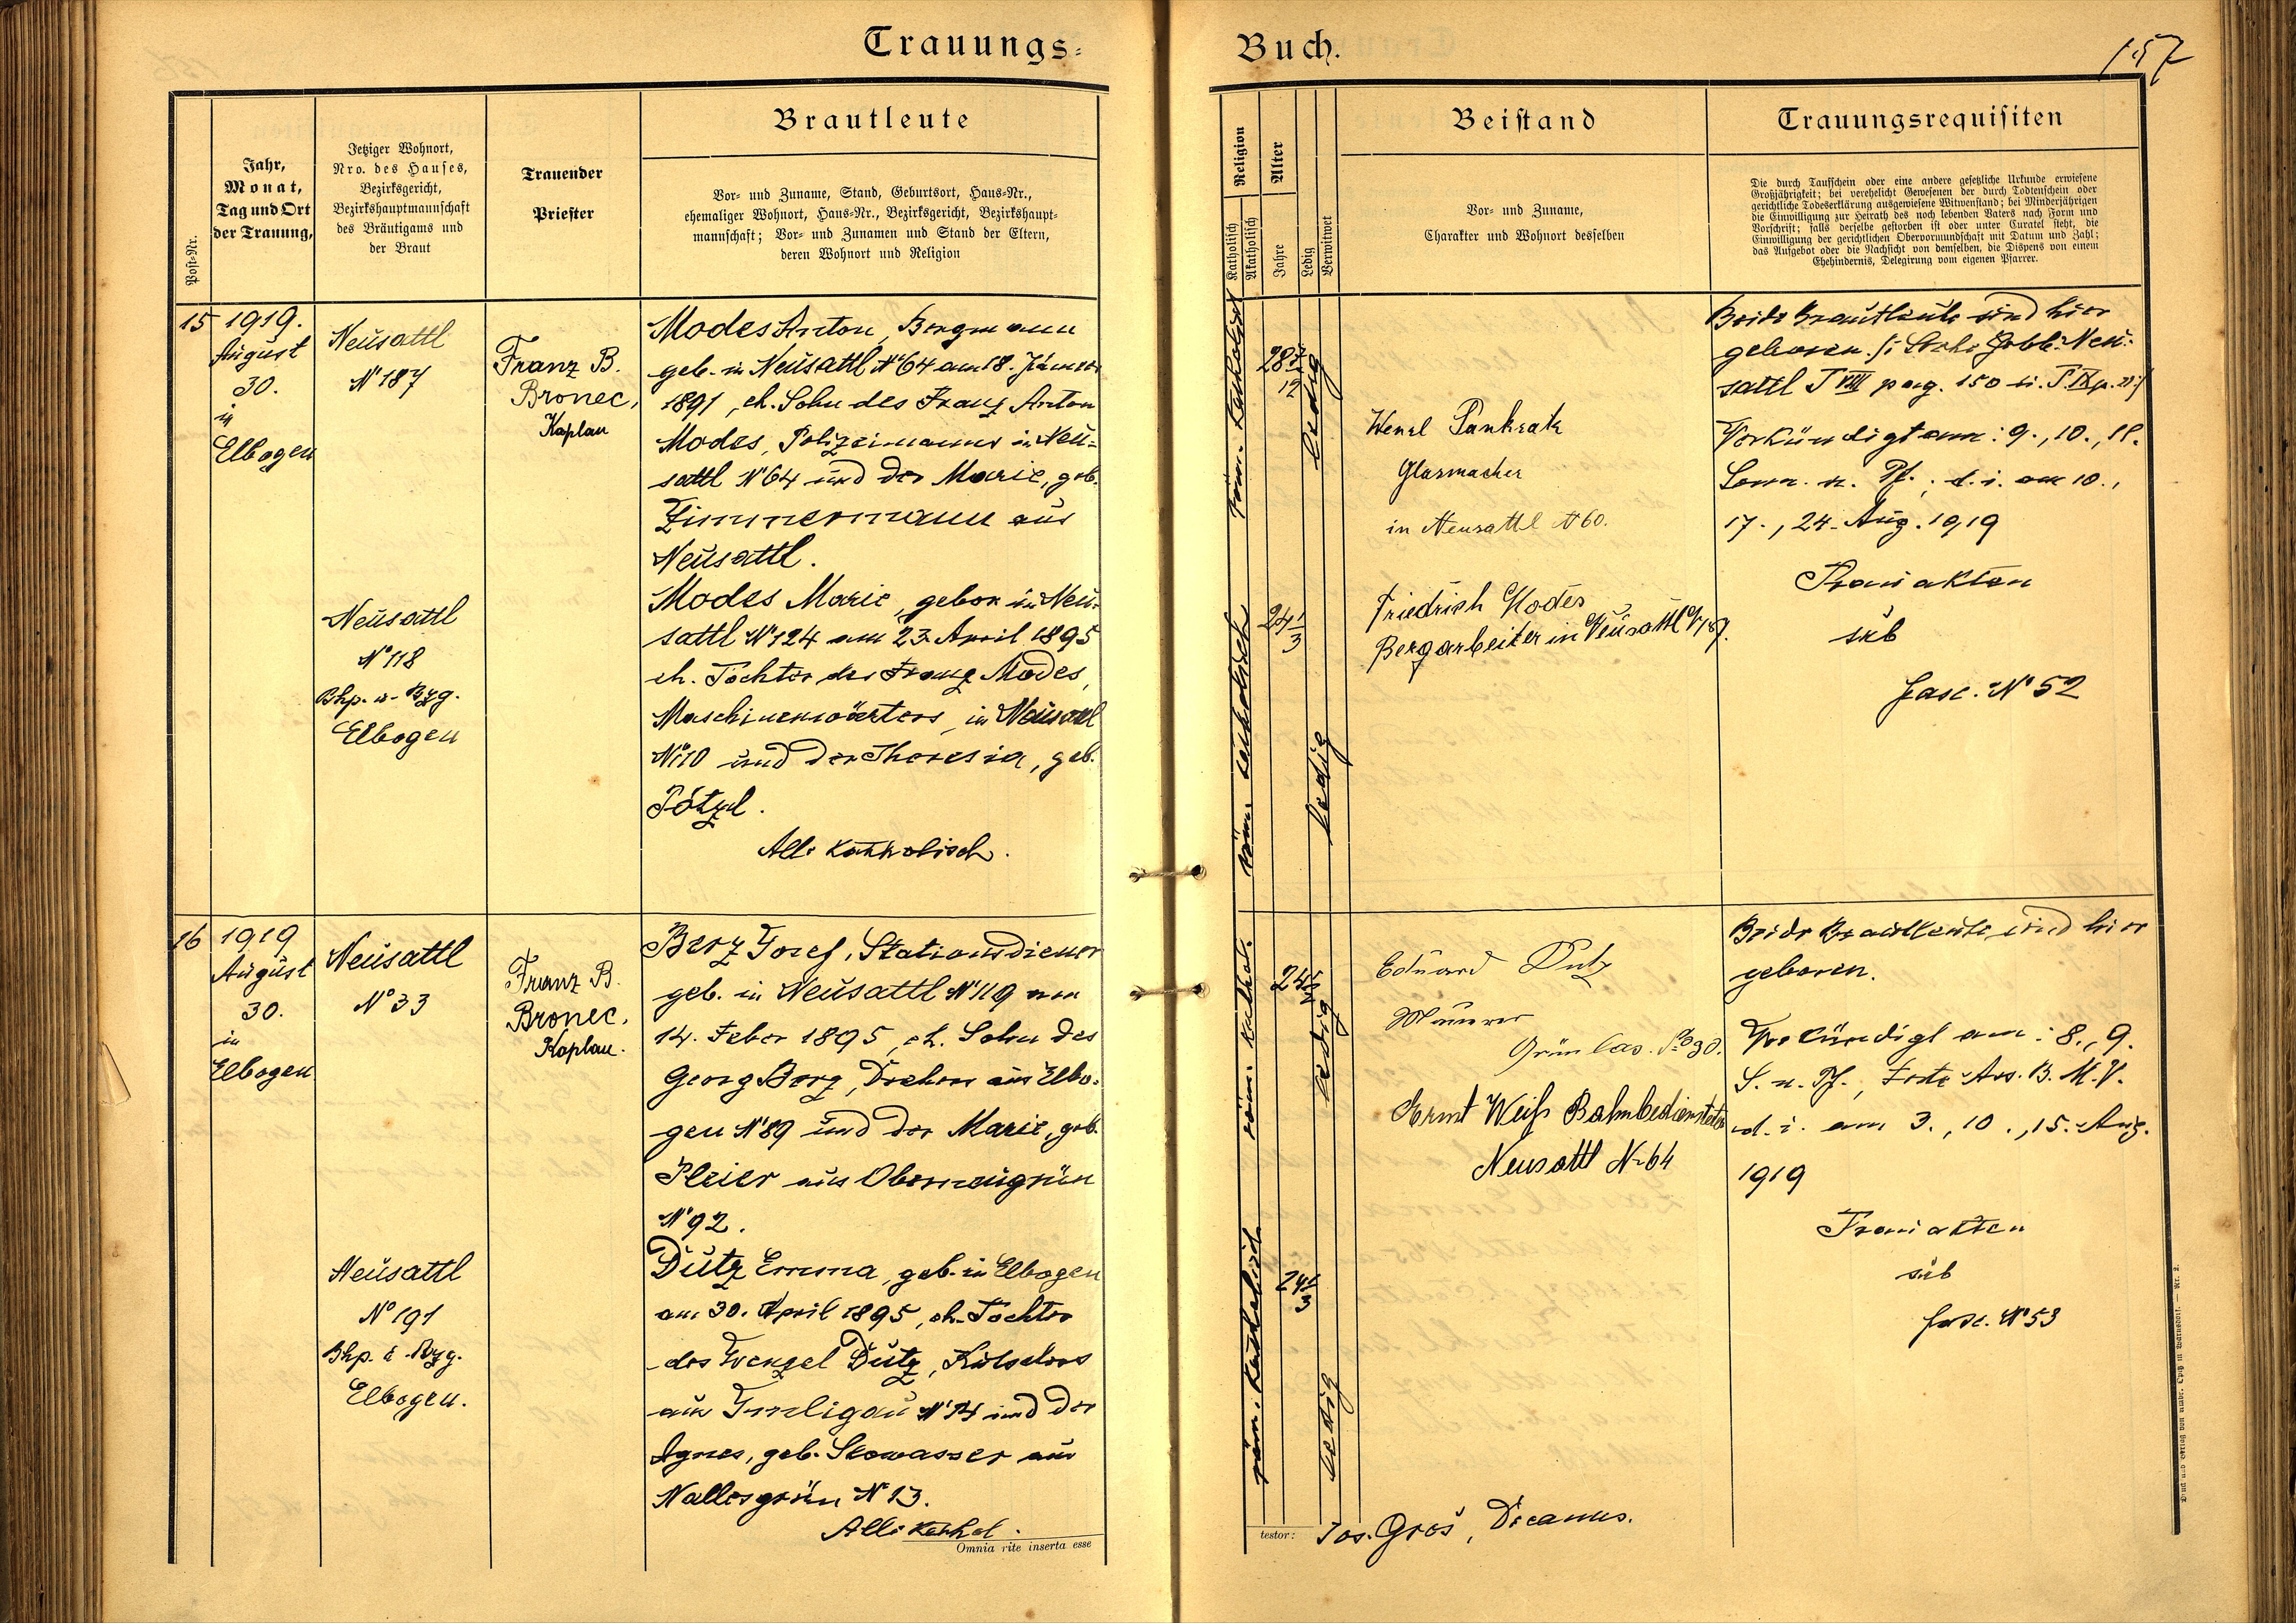 Trauungs-
Buch.
157
Post-Nr.
Jahr,
Monat,
Tag und Ort
der Trauung,
Jetziger Wohnort,
Nro. des Hauses,
Bezirksgericht,
Bezirkshauptmannschaft
des Bräutigams und
der Braut
Trauender
Priester
Brautleute
Vor- und Zuname, Stand, Geburtsort, Haus-Nr.,
ehemaliger Wohnort, Haus-Nr., Bezirksgericht, Bezirkshaupt-
mannschaft; Vor- und Zunamen und Stand der Eltern,
deren Wohnort und Religion
Religion
Katholisch
Akatholisch
Alter
Jahre
Ledig
Verwitwet
Beistand
Vor- und Zuname,
Charakter und Wohnort desselben
Trauungsrequisiten
Die durch Taufschein oder eine andere gesetzliche Urkunde erwiesene
Großjährigkeit; bei verehelicht Gewesenen der durch Todtenschein oder
gerichtliche Todeserklärung ausgewiesene Witwenstand; bei Minderjährigen
die Einwilligung zur Heirath des noch lebenden Vaters nach Form und
Vorschrift; falls derselbe gestorben ist oder unter Curatel steht, die
Einwilligung der gerichtlichen Obervormundschaft mit Datum und Zahl;
das Aufgebot oder die Nachsicht von demselben, die Dispens von einem
Ehehindernis, Delegirung vom eigenen Pfarrer.
15
1919.
August
30.
in
Elbogen
Neusattl
N° 187
Franz B.
Bronec,
Kaplan
Modes Anton, Bergmann
geb. in Neusattl N° 64 am 18. Jänner
1891, eh. Sohn des Franz Anton
Modes, Polizeimanns in Neu-
sattl N° 64 und der Marie, geb.
Zimmermann aus
Neusattl.
Neusattl
N° 118
Bhp. u. Bzg.
Elbogen
Modes Marie, gebor. in Neu-
sattl N° 124 am 23. April 1895
eh. Tochter des Franz Modes,
Maschinenwärters in Neusattl
N° 110 und der Theresia, geb.
Pötzl.
Alle katholisch.
röm. katholisch
28 7/12
ledig
röm. katholisch
24 1/3
ledig
Wenzl Pankratz
Glasmacher
in Neusattl N° 60.
Friedrich Modes
Bergarbeiter in Neusattl N 187.
Beide Brautleute sind hier
geboren
sattl T VIII pag. 150
Verkündigt am: 9., 10., 11.
Sonn. n. Pf., d. i. am 10.,
17., 24. Aug. 1919
Trauakten
sub
fasc. N° 52
16
1919
August
30.
in
Elbogen
Neusattl
N° 33
Franz B.
Bronec,
Kaplan.
Berz Josef, Stationsdiener
geb. in Neusattl N° 119 am
14. Feber 1895, eh. Sohn des
Georg Berz, Drehers aus Elbo-
gen N° 89 und der Marie, geb.
Pleier aus Oberneugrün
N° 92.
Neusattl
N° 191
Bhp. u. Bzg.
Elbogen.
Dutz Emma, geb. in Elbogen
am 30. April 1895, eh. Tochter
des Wenzel Dutz, Kutschers
aus N° 14 und der
Agnes, geb. Stowasser aus
Nallesgrün N° 13.
Alle kathol.
röm. kathol.
ledig
röm. katholisch
24 1/3
ledig
Eduard Dutz
Maurer
Grünlas N° 30.
Ernst Weiß Bahnbediensteter
Neusattl N° 64
Beide Brautleute sind hier
geboren.
Verkündigt am: 8., 9.
S. n. Pf., Feste Ass. B. M. V.
d. i. am 3., 10., 15. Aug.
1919
Trauakten
sub
fasc. N° 53
Omnia rite inserta esse
testor: Jos. Groš, Decanus.